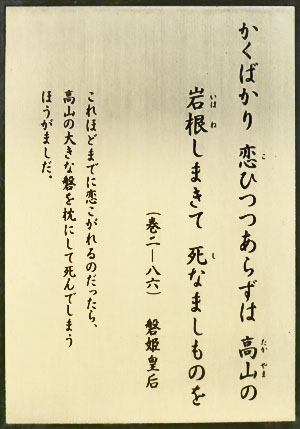 かくばかり 恋ひつつあらずは 高山の
岩根しまきて 死なましものを
（巻二―八六） 磐姫皇后
これほどまでに恋こがれるのだったら、
高山の大きな磐を枕にして死んでしまう
ほうがましだ。